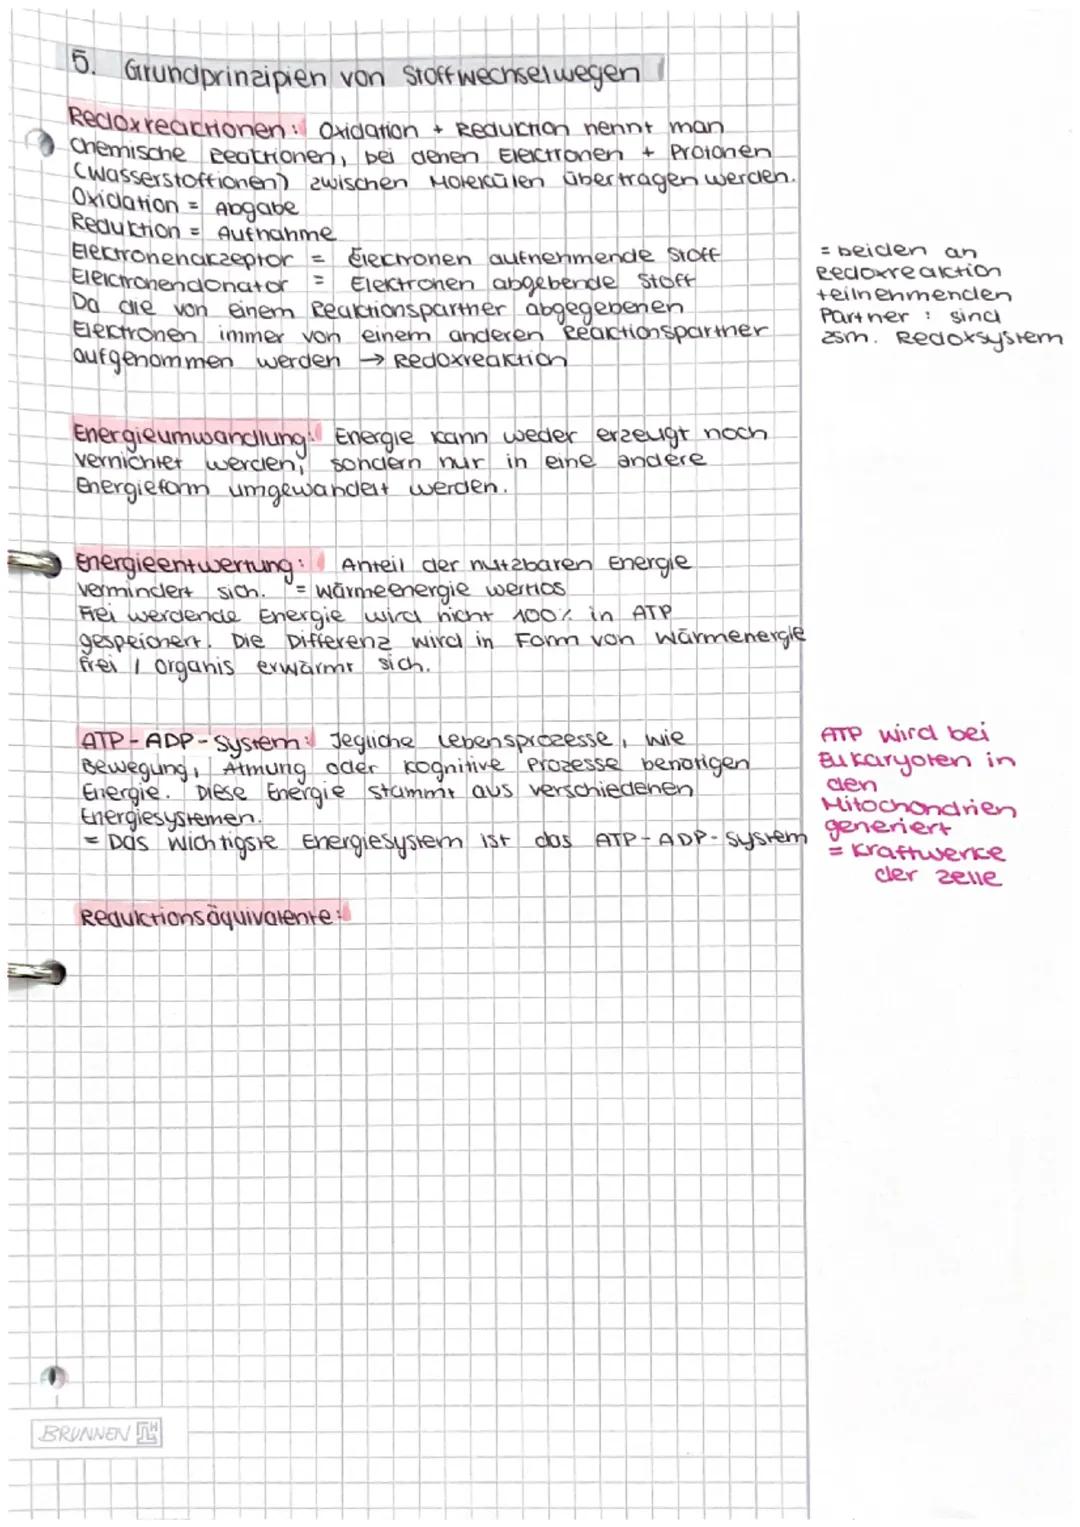 5. Grundprinzipien von Stoffwechselwegen
Redoxreaktionen: Oxidation + Reduktion nennt man
chemische Reaktionen, bei denen Elektronen + Protonen
(Wasserstoffionen) zwischen Molekülen übertragen werden.
Oxidation = Abgabe
Reduktion = Aufnahme
Elektronenakzeptor = Elektronen aufnehmende Stoff
Elektronendonator = Elektronen abgebende Stoff
= beiden an
Redoxreaktion
teilnehmenden
Partner : sind
zsm. Redoxsystem
Da die von einem Reaktionspartner abgegebenen
Elektronen immer von einem anderen Reaktionspartner
aufgenommen werden → Redoxreaktion
Energieumwandlung: Energie kann weder erzeugt noch
vernichtet werden, sondern nur in eine andere
Energieform umgewandelt werden.
Energieentwertung: Anteil der nutzbaren Energie
vermindert sich. = wärmeenergie wertlos
Frei werdende Energie wird nicht 100% in ATP
gespeichert. Die Differenz wird in Form von Wärmenergie
frei / organis erwärmt sich.
ATP-ADP-System: Jegliche Lebensprozesse, wie
Bewegung, Atmung oder kognitive Prozesse benötigen
Energie. Diese Energie stammt aus verschiedenen
Energiesystemen.
= Das wichtigste Energiesystem ist das ATP-ADP-System
ATP wird bei
Eukaryoten in
den
Mitochondrien
generiert
= Kraftwerke
der Zelle
Reduktionsäquivalente:
BRUNNEN